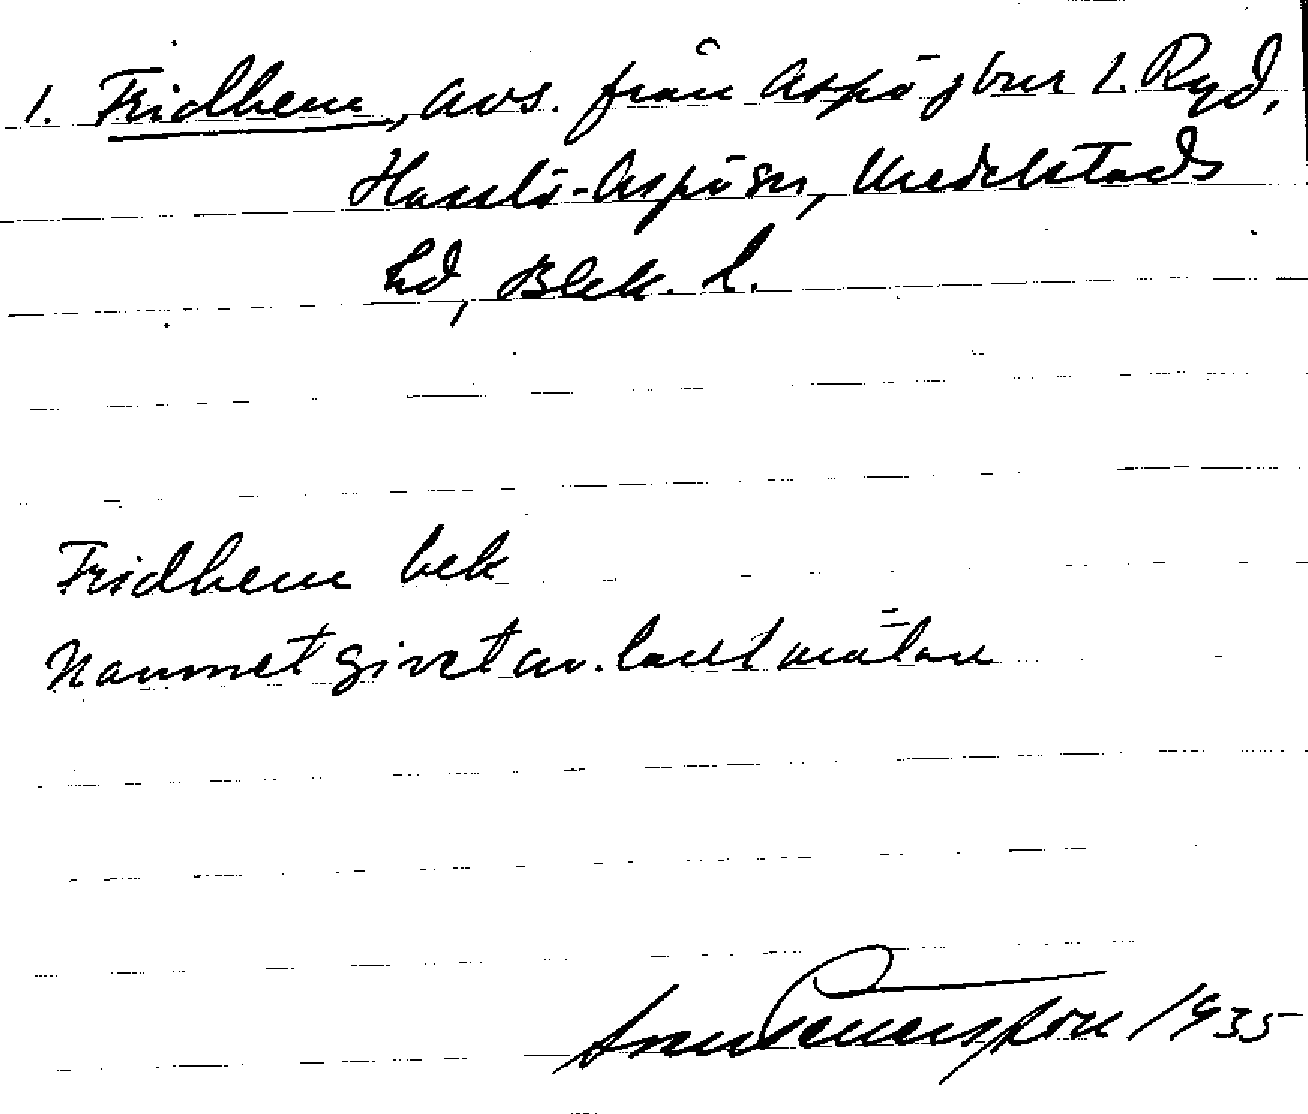 1. Fridhem, avs. från Aspö
Hasslö-Aspö sn, Medelstads
hd, Blek. l.
Fridhem bek
Namnet givet av lantmätare
1935